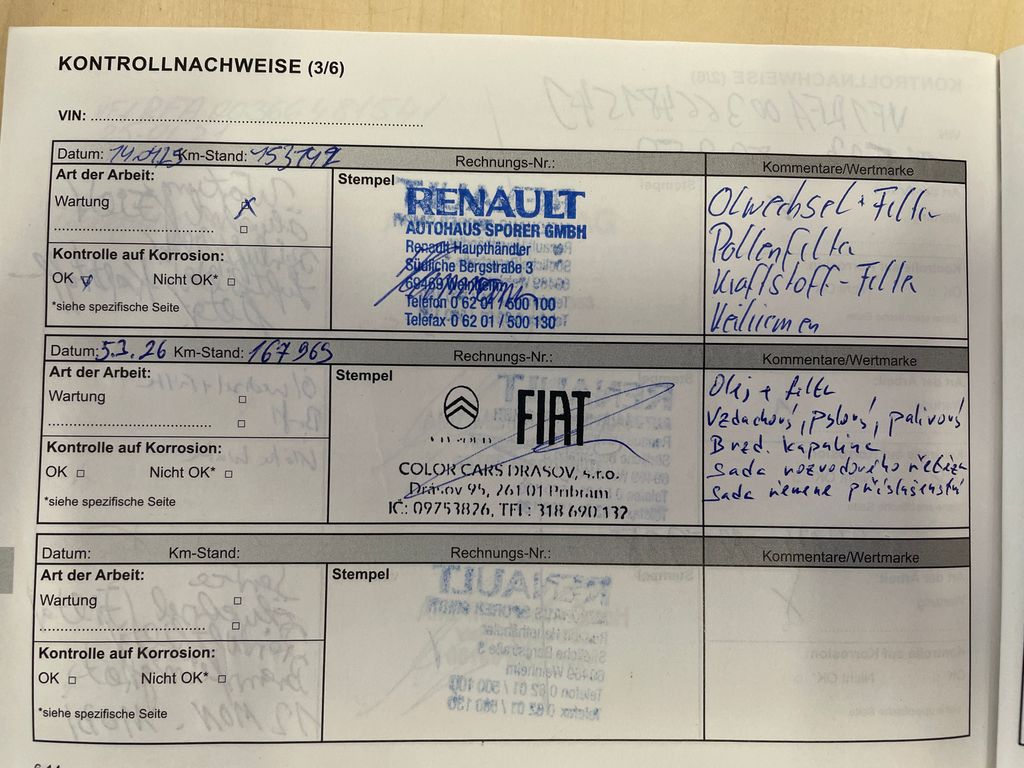 KONTROLLNACHWEISE (3/6)
VIN:
Datum: Km-Stand: 153142 Rechnungs-Nr.: Kommentare/Wertmarke
Art der Arbeit:
Wartung
Kontrolle auf Korrosion:
OK Nicht OK*
*siehe spezifische Seite
Stempel
RENAULT
AUTOHAUS SPORER GMBH
Renault Haupthändler
Südliche Bergstraße 3
69469 Weinheim
Telefon 0 62 01 / 500 100
Telefax 0 62 01 / 500 130
Ölwechsel + Filter
Pollenfilter
Kraftstoff-Filter
Keilriemen
Datum: 5.3.26 Km-Stand: 167965 Rechnungs-Nr.: Kommentare/Wertmarke
Art der Arbeit:
Wartung
Kontrolle auf Korrosion:
OK Nicht OK*
*siehe spezifische Seite
Stempel
FIAT
COLOR CARS DRASOV, s.r.o.
Drásov 95, 261 01 Příbram
IČ: 09753826, TEL: 318 690 137
Olej + filtr
Vzdachový, pylový, palivový
Brzd. kapalina
Sada rozvodového řetěze
Sada řemene příslušenství
Datum: Km-Stand: Rechnungs-Nr.: Kommentare/Wertmarke
Art der Arbeit:
Wartung
Kontrolle auf Korrosion:
OK Nicht OK*
*siehe spezifische Seite
Stempel